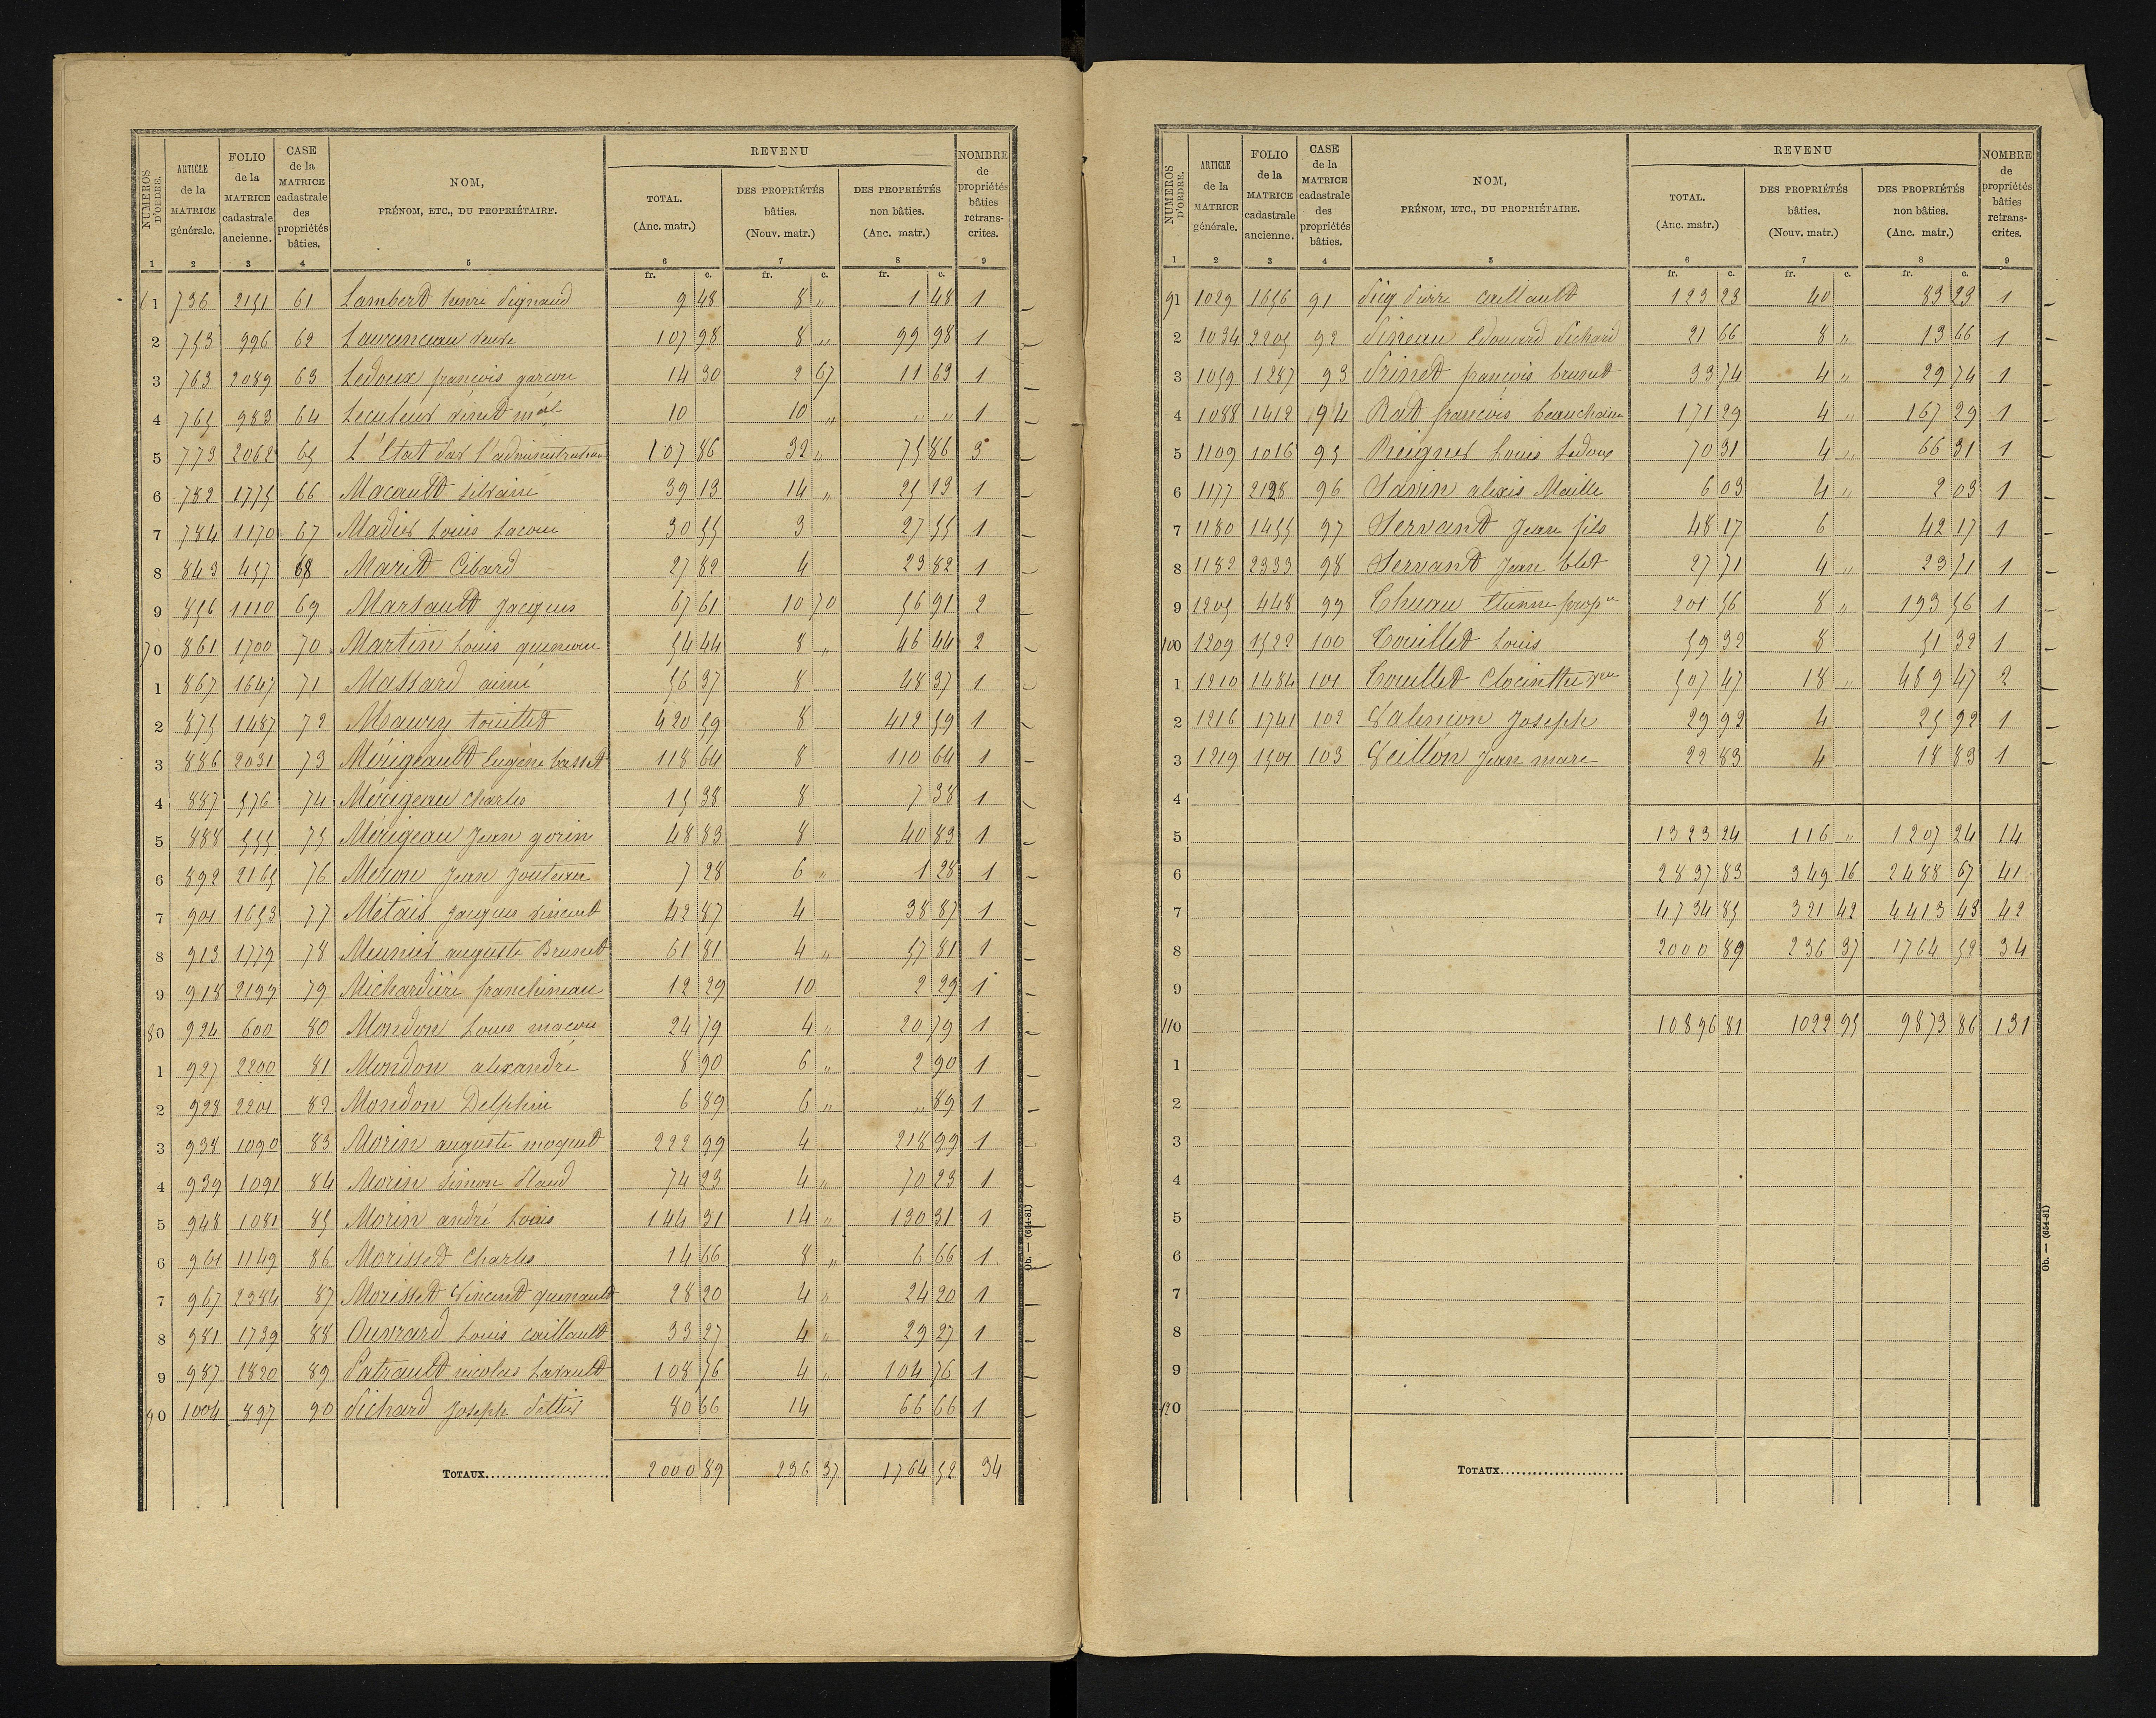 NUMEROS D'ORDRE. | ARTICLE de la MATRICE générale. | FOLIO de la MATRICE cadastrale ancienne. | CASE de la MATRICE cadastrale des propriétés bâties. | NOM, PRÉNOM, ETC., DU PROPRIÉTAIRE. | REVENU TOTAL. (Anc. matr.) | DES PROPRIÉTÉS bâties. (Nouv. matr.) | DES PROPRIÉTÉS non bâties. (Anc. matr.) | NOMBRE de propriétés bâties retrans-crites.
1 | 2 | 3 | 4 | 5 | 6 | 7 | 8 | 9
fr. c. | fr. c. | fr. c.
61 | 736 | 2151 | 61 | Lambert henri Pignaud | 9 48 | 8 " | 1 48 | 1
2 | 753 | 996 | 62 | Lauranceau veuve | 107 98 | 8 " | 99 98 | 1
3 | 763 | 2089 | 63 | Ledoux françois garçon | 14 30 | 2 67 | 11 63 | 1
4 | 765 | 983 | 64 | Lecuteur | 10 | 10 " | " " | 1
5 | 773 | 2062 | 65 | L'Etat Par l'administration | 107 86 | 32 " | 75 86 | 3
6 | 782 | 1775 | 66 | Macault Silvain | 39 13 | 14 " | 25 13 | 1
7 | 784 | 1170 | 67 | Madier Louis Lacour | 30 55 | 3 | 27 55 | 1
8 | 843 | 457 | 68 | Marit Cibard | 27 82 | 4 | 23 82 | 1
9 | 856 | 1110 | 69 | Marsault Jacques | 67 61 | 10 70 | 56 91 | 2
70 | 861 | 1700 | 70 | Martin Louis | 54 44 | 8 " | 46 44 | 2
1 | 867 | 1647 | 71 | Massard aimé | 56 37 | 8 | 48 37 | 1
2 | 875 | 1487 | 72 | Maury touillet | 420 59 | 8 | 412 59 | 1
3 | 886 | 2031 | 73 | Mérigeault Eugène basset | 118 64 | 8 | 110 64 | 1
4 | 887 | 576 | 74 | Mérigeau Charles | 15 38 | 8 | 7 38 | 1
5 | 888 | 555 | 75 | Mérigeau Jean gorin | 48 83 | 8 | 40 83 | 1
6 | 892 | 2165 | 76 | Meron Jean Jouteau | 7 28 | 6 " | 1 28 | 1
7 | 901 | 1653 | 77 | Métais Jacques vincent | 42 87 | 4 | 38 87 | 1
8 | 913 | 1779 | 78 | Meunier auguste Brunet | 61 81 | 4 " | 57 81 | 1
9 | 918 | 2199 | 79 | Michardière franchineau | 12 29 | 10 | 2 29 | 1
80 | 924 | 600 | 80 | Mondon Louis maçon | 24 79 | 4 " | 20 79 | 1
1 | 927 | 2200 | 81 | Mondon alexandre | 8 90 | 6 " | 2 90 | 1
2 | 928 | 2201 | 82 | Mondon Delphin | 6 89 | 6 " | " 89 | 1
3 | 938 | 1090 | 83 | Morin auguste moquet | 222 99 | 4 | 218 99 | 1
4 | 939 | 1091 | 84 | Morin Simon | 74 23 | 4 " | 70 23 | 1
5 | 948 | 1081 | 85 | Morin andré Louis | 144 31 | 14 " | 130 31 | 1
6 | 961 | 1149 | 86 | Morisset Charles | 14 66 | 8 " | 6 66 | 1
7 | 967 | 2384 | 87 | Morisset Vincent quenault | 28 20 | 4 " | 24 20 | 1
8 | 981 | 1739 | 88 | Ouvrard Louis caillault | 33 27 | 4 " | 29 27 | 1
9 | 987 | 1820 | 89 | Patrault nicolas Lavault | 108 76 | 4 " | 104 76 | 1
90 | 1004 | 897 | 90 | Pichard Joseph | 80 66 | 14 | 66 66 | 1
TOTAUX | 2000 89 | 236 37 | 1764 52 | 34
Ob. — (654-81)
NUMEROS D'ORDRE. | ARTICLE de la MATRICE générale. | FOLIO de la MATRICE cadastrale ancienne. | CASE de la MATRICE cadastrale des propriétés bâties. | NOM, PRÉNOM, ETC., DU PROPRIÉTAIRE. | REVENU TOTAL. (Anc. matr.) | DES PROPRIÉTÉS bâties. (Nouv. matr.) | DES PROPRIÉTÉS non bâties. (Anc. matr.) | NOMBRE de propriétés bâties retrans-crites.
1 | 2 | 3 | 4 | 5 | 6 | 7 | 8 | 9
fr. c. | fr. c. | fr. c.
91 | 1029 | 1656 | 91 | Picq Pierre caillault | 123 23 | 40 | 83 23 | 1
2 | 1034 | 2205 | 92 | Pineau Edouard Pichard | 21 66 | 8 " | 13 66 | 1
3 | 1059 | 1287 | 93 | Prinet françois brunet | 33 74 | 4 " | 29 74 | 1
4 | 1088 | 1412 | 94 | Rat françois beauchaine | 171 29 | 4 " | 167 29 | 1
5 | 1109 | 1016 | 95 | Louis Ledoux | 70 31 | 4 " | 66 31 | 1
6 | 1177 | 2128 | 96 | Savin alexis Maille | 6 03 | 4 " | 2 03 | 1
7 | 1180 | 1455 | 97 | Servant Jean fils | 48 17 | 6 | 42 17 | 1
8 | 1182 | 2333 | 98 | Servant Jean blet | 27 71 | 4 " | 23 71 | 1
9 | 1205 | 448 | 99 | Thuau Etienne prop.re | 201 56 | 8 " | 193 56 | 1
100 | 1209 | 1522 | 100 | Touillet Louis | 59 32 | 8 | 51 32 | 1
1 | 1210 | 1484 | 101 | Touillet | 507 47 | 18 " | 489 47 | 2
2 | 1216 | 1741 | 102 | Valençon Joseph | 29 92 | 4 | 25 92 | 1
3 | 1219 | 1501 | 103 | Veillon Jean marc | 22 83 | 4 | 18 83 | 1
4
5 | 1323 24 | 116 " | 1207 24 | 14
6 | 2837 83 | 349 16 | 2488 67 | 41
7 | 4734 85 | 321 42 | 4413 43 | 42
8 | 2000 89 | 236 37 | 1764 52 | 34
9
110 | 10896 81 | 1022 95 | 9873 86 | 131
1
2
3
4
5
6
7
8
9
120
TOTAUX
Ob. — (654-81)